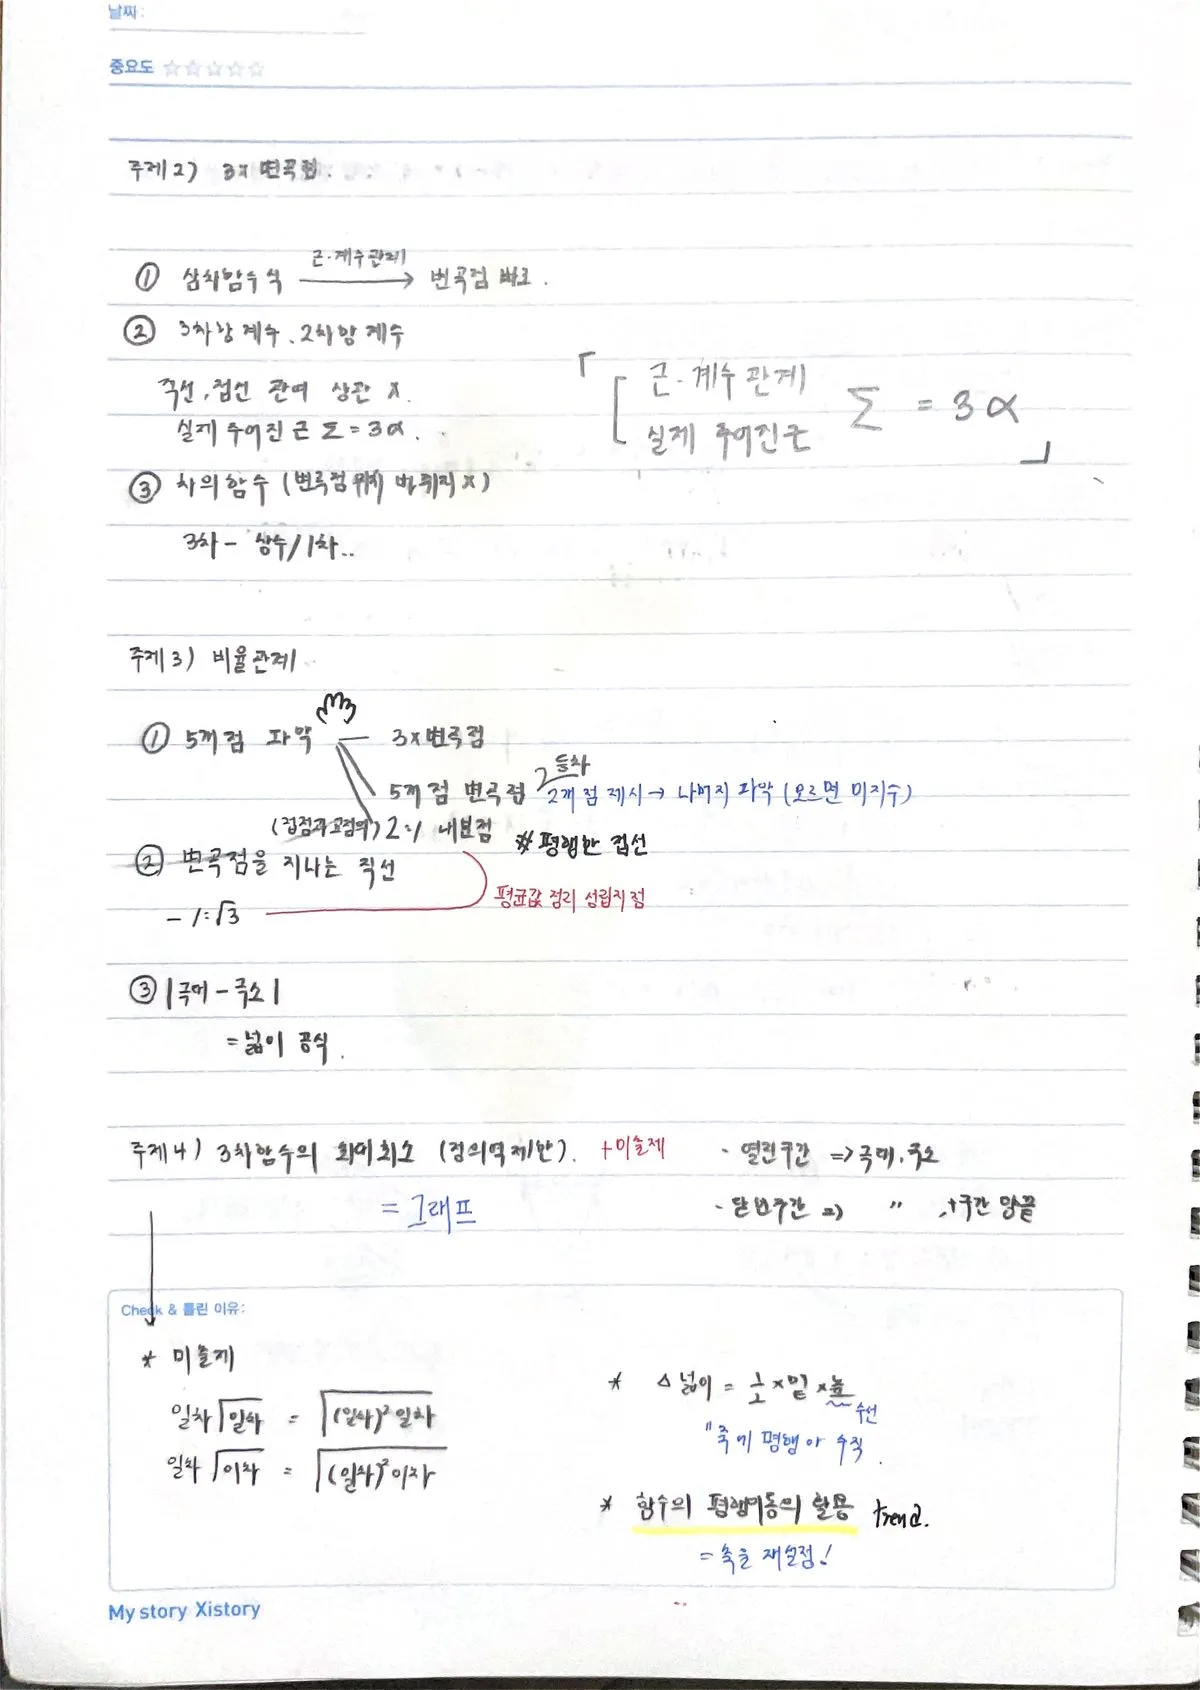 날짜:
중요도 ☆☆☆☆☆
주제2) 3x 변곡점.
① 삼차함수식 근·계수관계 → 변곡점 바로.
② 3차항 계수, 2차항 계수
직선, 접선 관여 상관 x.
실제 주어진 근 Σ = 3α.
「 근·계수관계
실제 주어진근 Σ = 3α 」
③ 차의함수 (변곡점 위치 바뀌지 x)
3차 - 상수/1차..
주제3) 비율관계
① 5개점 파악 — 3x변곡점
5개점 변곡점 등차 2개 점 제시 → 나머지 파악 (모르면 미지수)
(접점과 교점의) 2:1 내분점 ※평행한 접선
② 변곡점을 지나는 직선
- 1:√3 평균값 정리 성립지점
③ |극대 - 극소|
= 넓이 공식.
주제4) 3차함수의 최대최소 (정의역제한). +미출제
= 그래프
- 열린구간 => 극대, 극소
- 닫힌구간 => 〃 , +구간 양끝
Check & 틀린 이유:
* 미출제
일차√일차 = √(일차)²일차
일차√이차 = √(일차)²이차
* △넓이 = ½ × 밑 × 높 수선
"축에 평행 or 수직.
* 함수의 평행이동의 활용 trend.
= 축을 재설정!
My story Xistory